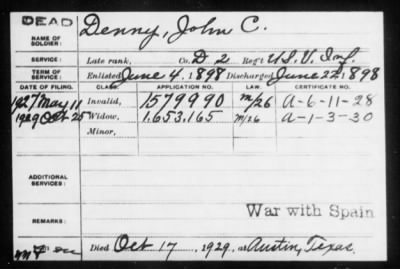 DEAD
NAME OF SOLDIER: Denny, John C.
SERVICE: Late rank, Co. D 2 Reg't U.S.V. Inf.
TERM OF SERVICE: Enlisted June 4, 1898 Discharged June 22, 1898
DATE OF FILING. CLASS. APPLICATION NO. LAW. CERTIFICATE NO.
1927 May 11 Invalid, 1579990 m/26 A-6-11-28
1929 Oct 25 Widow, 1,653,165 m/26 A-1-3-30
Minor,
ADDITIONAL SERVICES:
War with Spain
REMARKS:
Died Oct 17, 1929, at Austin, Texas.